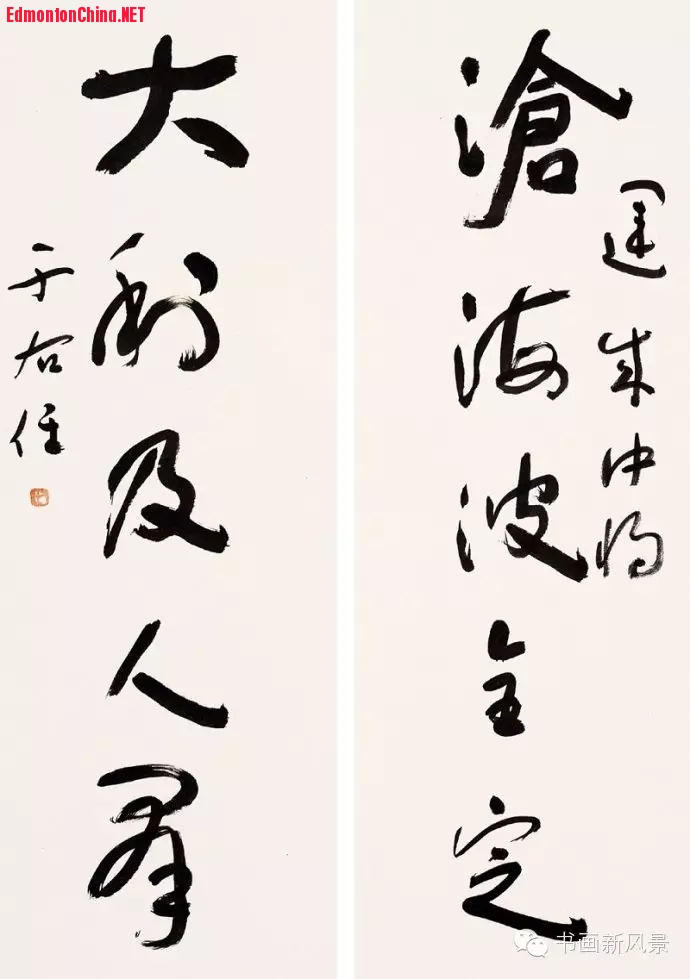 EdmontonChina.NET
運成中將
滄海波全定
大利及人羣
于右任
书画新风景